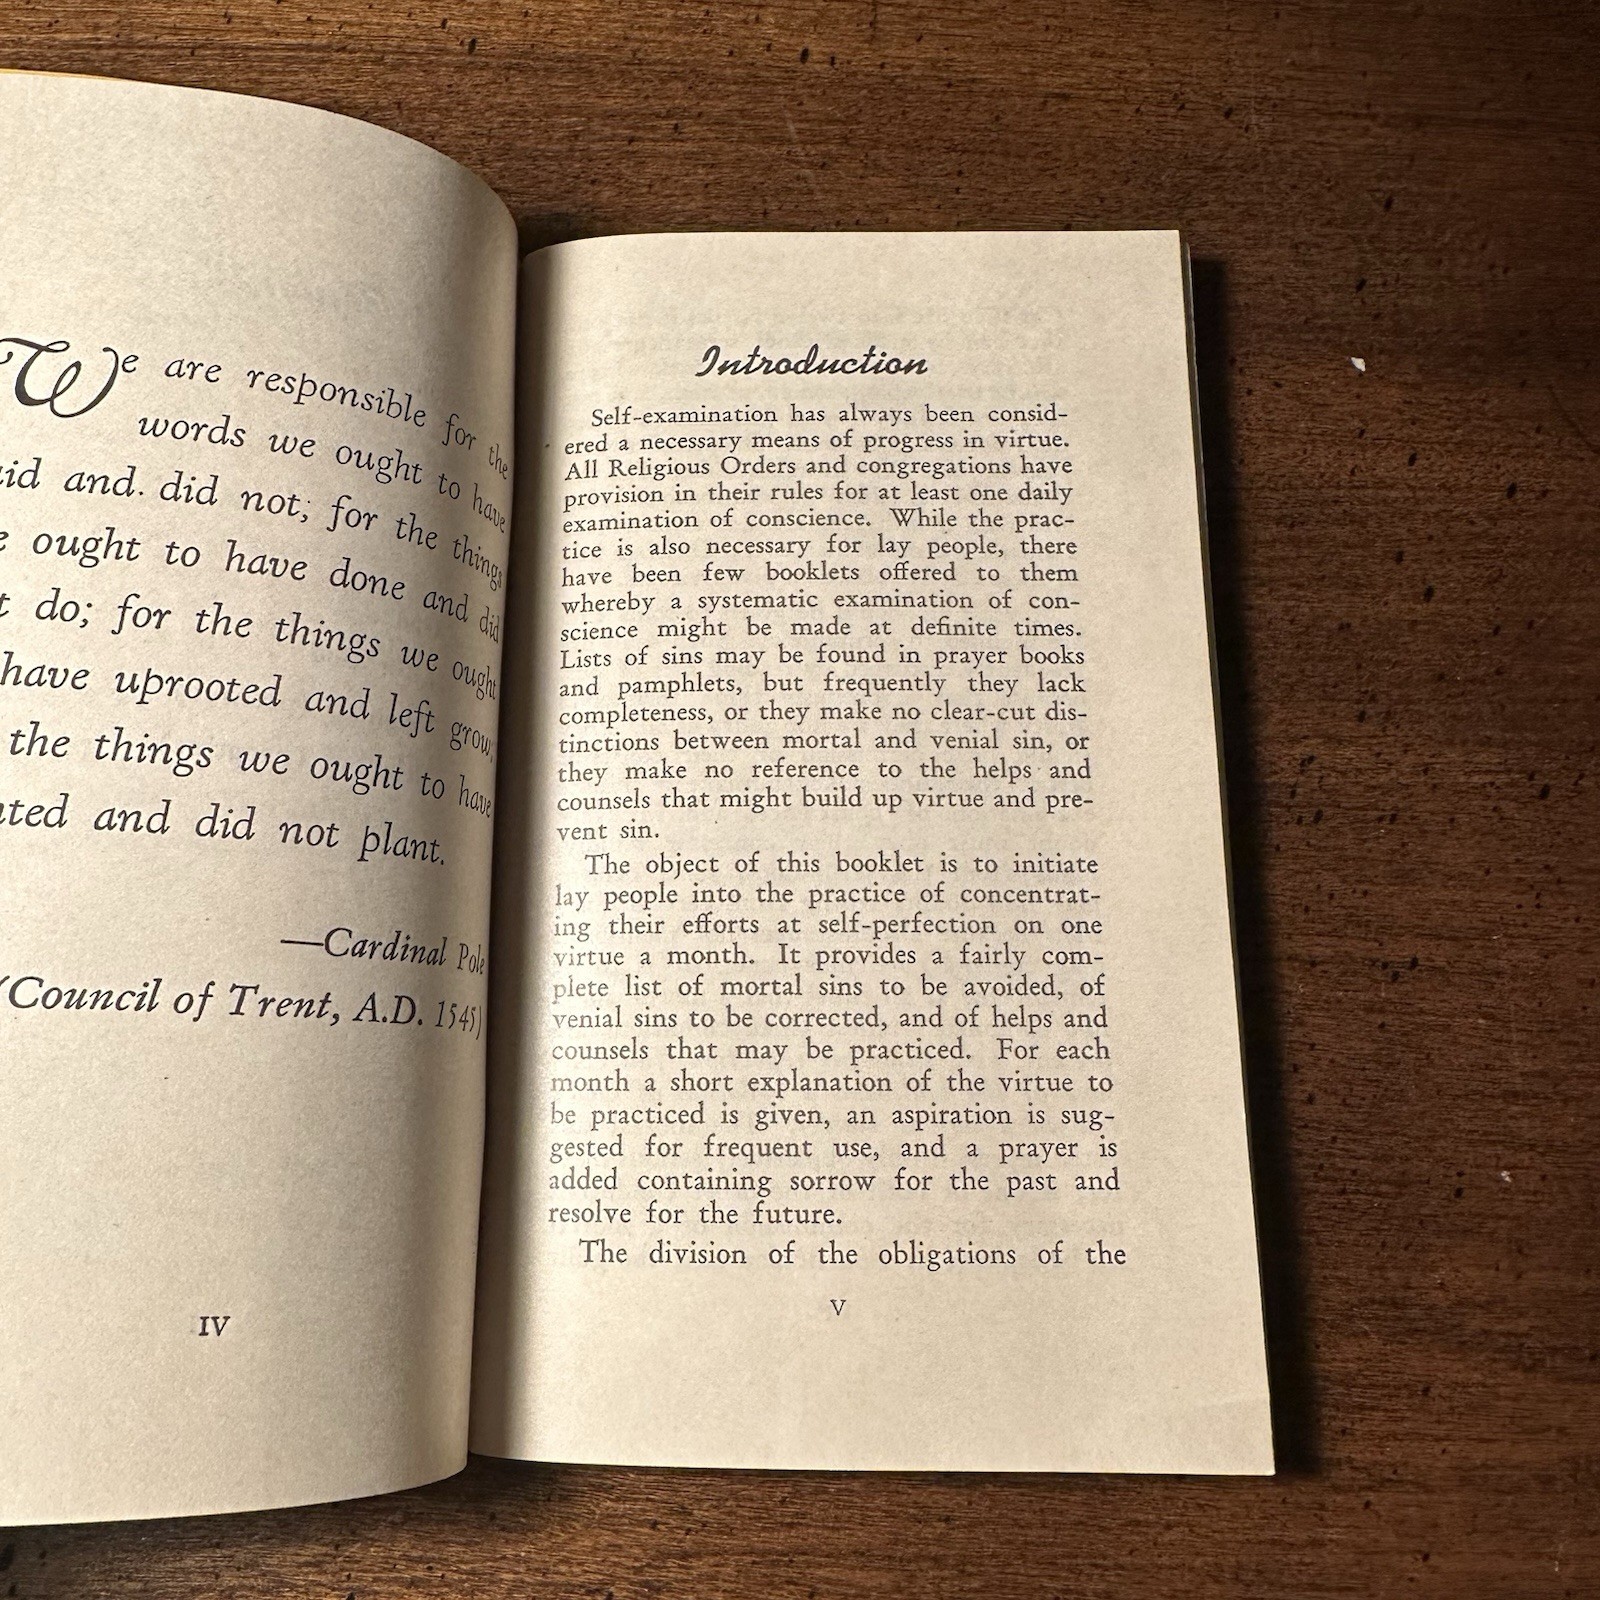 We are responsible for the
words we ought to have
and. did not; for the things
ought to have done and did
do; for the things we ought
have uprooted and left grow;
the things we ought to have
and did not plant.
—Cardinal Pole
(Council of Trent, A.D. 1545)
IV
Introduction
Self-examination has always been consid-
ered a necessary means of progress in virtue.
All Religious Orders and congregations have
provision in their rules for at least one daily
examination of conscience. While the prac-
tice is also necessary for lay people, there
have been few booklets offered to them
whereby a systematic examination of con-
science might be made at definite times.
Lists of sins may be found in prayer books
and pamphlets, but frequently they lack
completeness, or they make no clear-cut dis-
tinctions between mortal and venial sin, or
they make no reference to the helps and
counsels that might build up virtue and pre-
vent sin.
The object of this booklet is to initiate
lay people into the practice of concentrat-
ing their efforts at self-perfection on one
virtue a month. It provides a fairly com-
plete list of mortal sins to be avoided, of
venial sins to be corrected, and of helps and
counsels that may be practiced. For each
month a short explanation of the virtue to
be practiced is given, an aspiration is sug-
gested for frequent use, and a prayer is
added containing sorrow for the past and
resolve for the future.
The division of the obligations of the
V